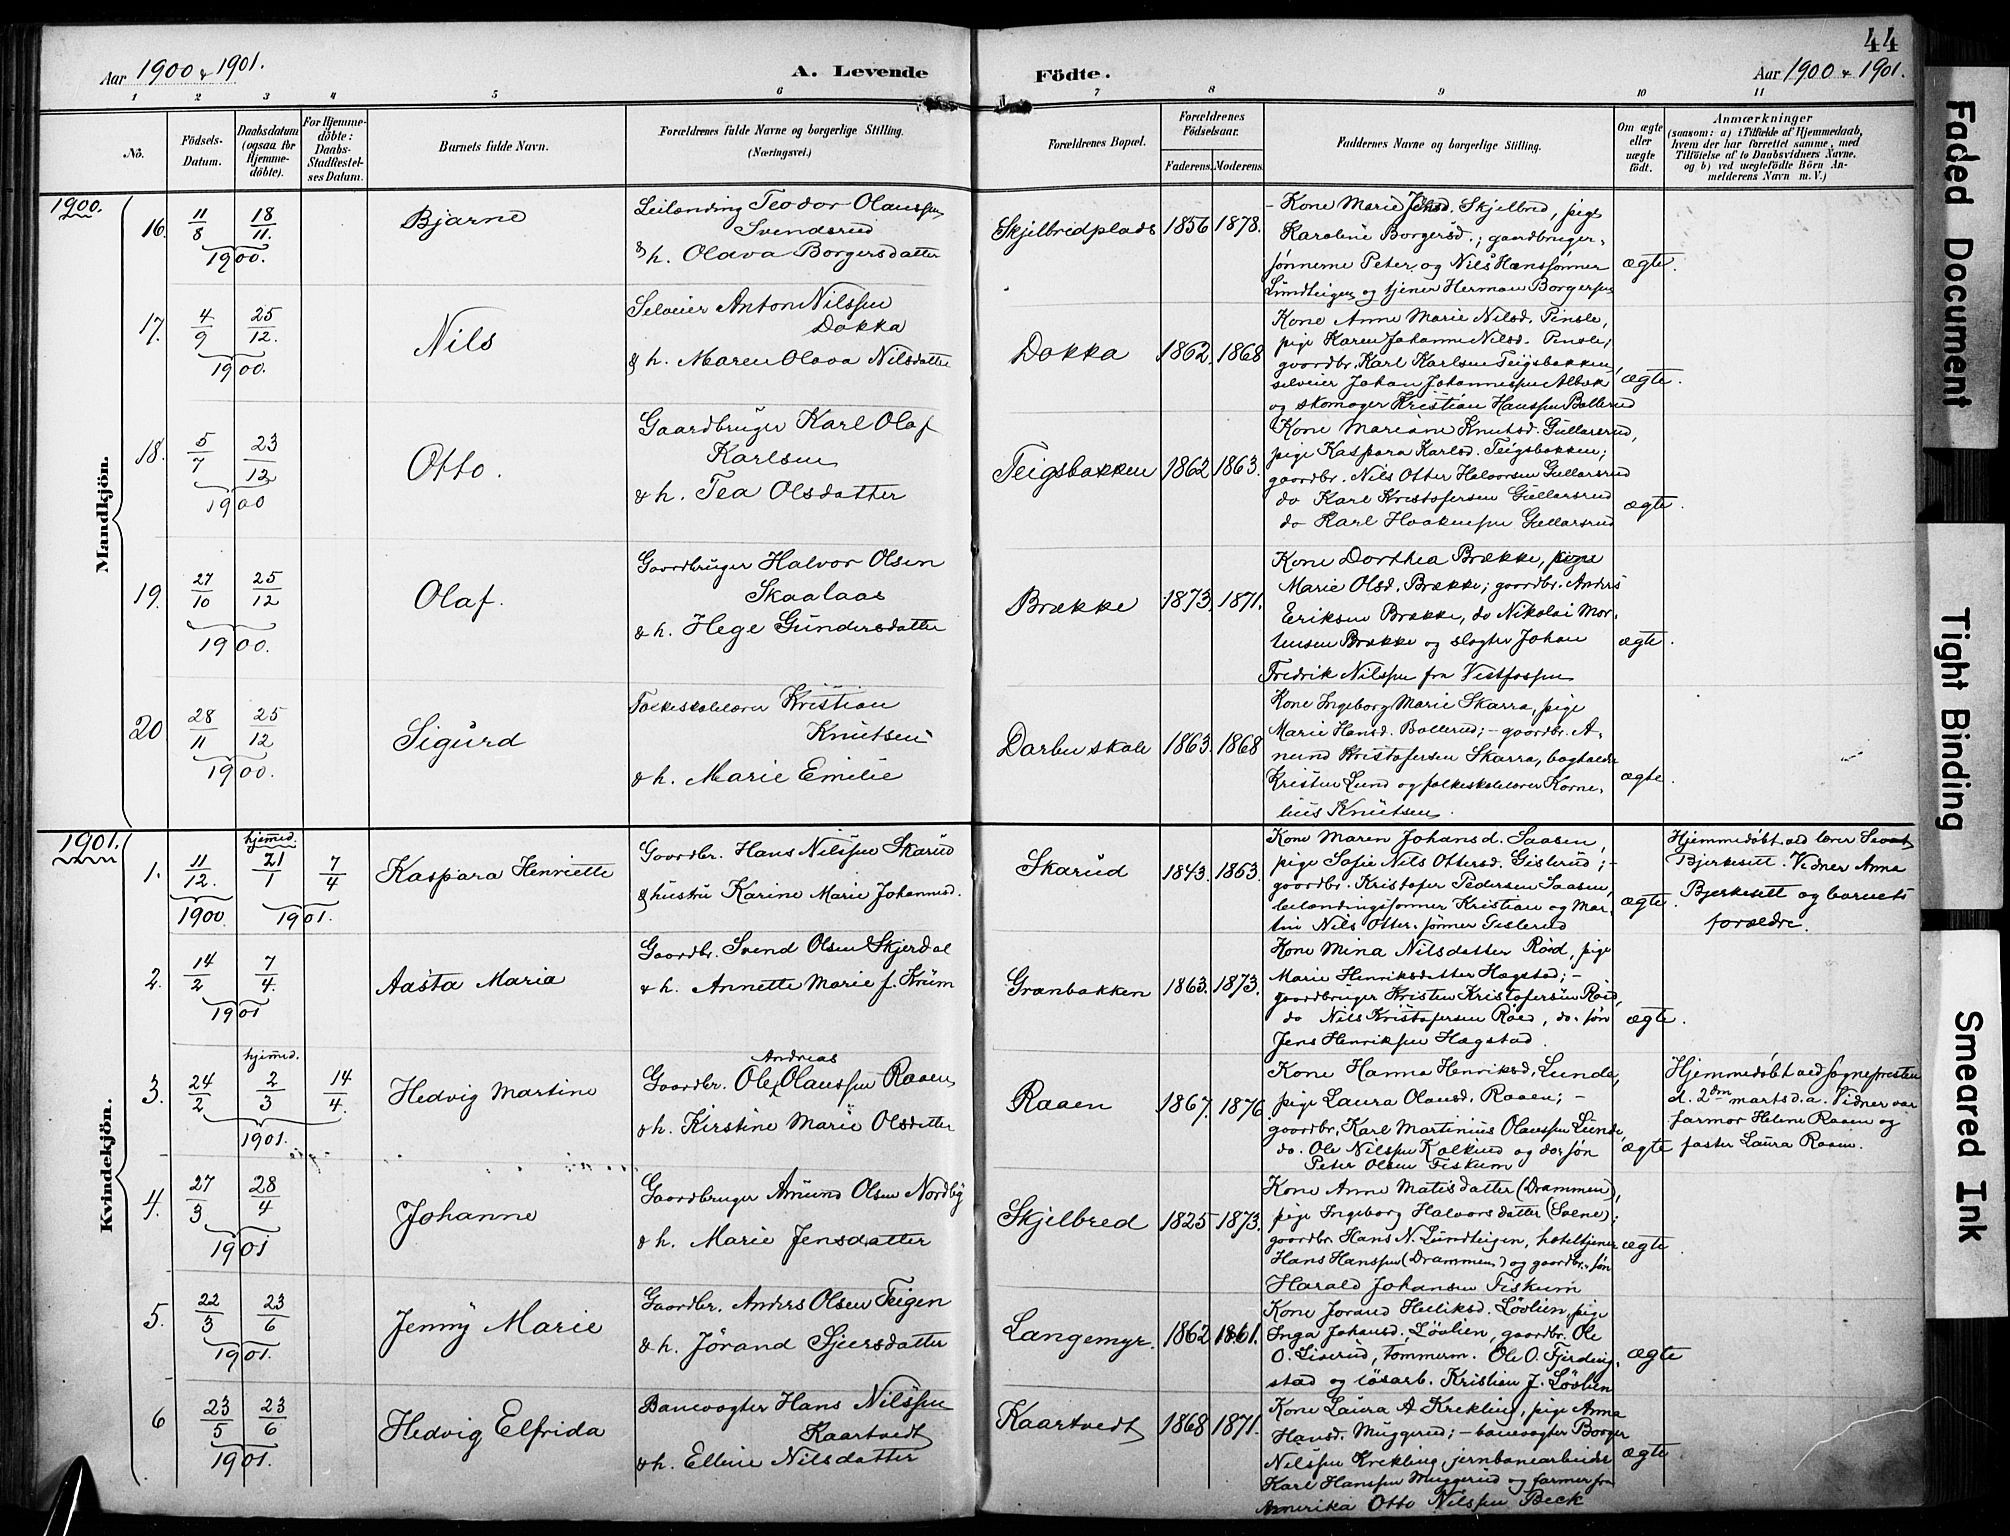 44
Aar 1900 & 1901.
A. Levende Födte.
Aar 1900 & 1901.
1 2 3 4 5 6 7 8 9 10 11
No.
Födsels-Datum.
Daabsdatum (ogsaa for Hjemme-döbte).
For Hjemme-döbte: Daabs-Stadfestel-ses Datum.
Barnets fulde Navn.
Forældrenes fulde Navne og borgerlige Stilling.
(Næringsvei.)
Forældrenes Bopæl.
Forældrenes Födselsaar.
Faderens. Moderens.
Faddernes Navne og borgerlige Stilling.
Om ægte eller uægte födt.
Anmærkninger
(saasom: a) i Tilfælde af Hjemmedaab,
hvem der har forrettet samme, med
Tilföielse af to Daabsvidners Navne,
og b) ved uægtefödte Börn An-
melderens Navn m. V.)
Mandkjön.
1900.
16. 11/8 18/11 1900.
Bjarne
Leilænding Teodor Olaussen
Svendsrud
& h. Olava Borgersdatter
Skjelbredplads 1856 1878.
Kone Marie Jensd. Skjelbred, pige
Karoline Borgersd.; gaardbruger-
sønnerne Peter og Nils Hanssønner
Lundteigen og tjener Herman Borgersen
ægte.
17. 4/9 25/12 1900.
Nils
Selveier Anton Nilssen
Dokka
& h. Maren Olava Nilsdatter
Dokka 1862. 1868
Kone Anne Marie Nilsd. Pinsle,
pige Karen Johanne Nilsd. Pinsle,
gaardbr. Karl Karlsen Teigsbakken,
selveier Johan Johannessen Albæk
og skomager Kristian Hanssen Bollerud
ægte.
18. 5/7 23/12 1900
Otto.
Gaardbruger Karl Olaf
Karlsen
& h. Tea Olsdatter
Teigsbakken 1862 1863.
Kone Mariane Knutsd. Gullarsrud,
pige Kaspara Karlsd. Teigsbakken;
gaardbr. Nils Otter Halvorsen Gullarsrud
do Karl Kristofersen Gullarsrud
do Karl Haakensen Gullarsrud
ægte.
19. 27/10 25/12 1900.
Olaf.
Gaardbruger Halvor Olsen
Skaalaas
& h. Hege Gundersdatter
Brække 1873. 1871.
Kone Dorthea Brække, pige
Marie Olsd. Brække; gaardbr. Anders
Eriksen Brække, do Nikolai Mor-
tensen Brække og slagter Johan
Fredrik Nilssen fra Vestfossen
ægte.
20 28/11 25/12 1900.
Sigurd
Folkeskolelærer Kristian
Knutsen
& h. Marie Emilie
Darbu skole 1863. 1868
Kone Ingeborg Marie Skarra, pige
Marie Hansd. Bollerud; - gaardbr. A-
mund Kristofersen Skarra, boghalder
Kristen Lund og folkeskolelærer Korne-
lius Knutsen.
ægte.
Kvindekjön.
1901.
1. 11/12. 1900 hjemmed. 21/1 7/4 1901.
Kaspara Henriette
Gaardbr. Hans Nilssen Skarud
& hustru Karine Marie Johannesd.
Skarud 1843. 1863.
Kone Maren Johansd. Saasen,
pige Sofie Nils Ottersd. Gislerud; -
gaardbr. Kristofer Pedersen Saasen,
leilændingssønner Kristian og Mar-
tin Nils Otter-sønner Gislerud
ægte.
Hjemmedøbt ad lærer
Bjerkesett. Vidner Anna
Bjerkesett og barnets
forældre.
2. 14/2 7/4. 1901
Aasta Maria
Gaardbr. Svend Olsen Skjerdal
& h. Annette Marie f. Krum
Granbakken 1863. 1873.
Kone Mina Nilsdatter Røed, pige
Marie Henriksdatter Hagstad; -
gaardbruger Kristen Kristofersen Røed,
do Nils Kristofersen Røed, do-søn
Jens Henriksen Hagstad.
ægte.
3. 24/2 hjemmed. 2/3 14/4. 1901.
Hedvig Martine
Andreas
Gaardbr. Ole Olaussen Raaen
& h. Kirstine Marie Olsdatter
Raaen 1867. 1876
Kone Hanna Henriksd. Lunde,
pige Laura Olausd. Raaen; -
gaardbr. Karl Martinius Olaussen Lunde,
do. Ole Nilssen Kolkind og do søn
Peter Olsen Fiskum
ægte
Hjemmedøbt ad sognepresten
d. 2den marts d.a. Vidner var
farmor Helene Raaen og
faster Laura Raaen.
4. 27/3 28/4 1901
Johanne
Gaardbruger Amund Olsen Nordby
& h. Marie Jensdatter
Skjelbred 1825 1873.
Kone Anne Matisdatter (Drammen),
pige Ingeborg Halvorsdatter (Svene);
gaardbr. Hans N. Lundteigen, hoteltjener
Hans Hanssen (Drammen) og gaardbr.-søn
Harald Johansen Fiskum
ægte.
5. 22/3 23/6 1901.
Jenny Marie
Gaardbr. Anders Olsen Teigen
& h. Jørand Sjersdatter
Langemyr. 1862 1861.
Kone Jorand Helliksd. Løvlien, pige
Inga Johansd. Løvlien, gaardbr. Ole
O. Liserud, tømmerm. Ole O. Fjerding-
stad og løsarb. Kristian J. Løvlien
ægte
6 23/5 23/6 1901.
Hedvig Elfrida
Banevogter Hans Nilssen
Kaartvedt
& h. Elline Nilsdatter
Kaartvedt 1868 1871.
Kone Laura A Krekling, pige Anna
Hansd. Muggerud; - banevogter Borger
Nilssen Krekling, jernbanearbeider
Karl Hanssen Muggerud og farmer fra
Amerika Otto Nilssen Beck
ægte
Faded Document
Tight Binding
Smeared Ink